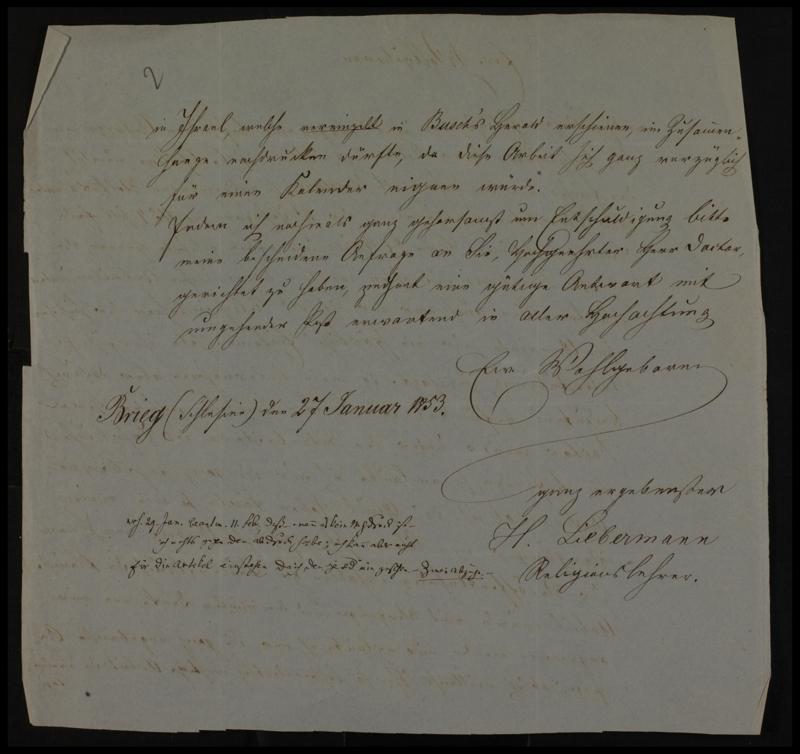 2
in Israel, welche vereinzelt in Busch's Herold erschienen, im Zusammen-
hange nachdrucken dürfte, da diese Arbeit sich ganz vorzüglich
für einen Kalender eignen würde.
Indem ich nochmals ganz gehorsamst um Entschuldigung bitte
meine bescheidene Anfrage an Sie, Hochgeehrter Herr Doctor,
gerichtet zu haben, und eine gütige Antwort mit
umgehender Post erwartend in aller Hochachtung
Ew. Wohlgeboren
Brieg (Schlesien) den 27 Januar 1853.
ganz ergebenster
H. Liebermann
Religionslehrer.
29. Jan. 11. Feb.
ich nichts gegen den Abdruck habe; ich kann aber nicht
für die Artikel einstehen